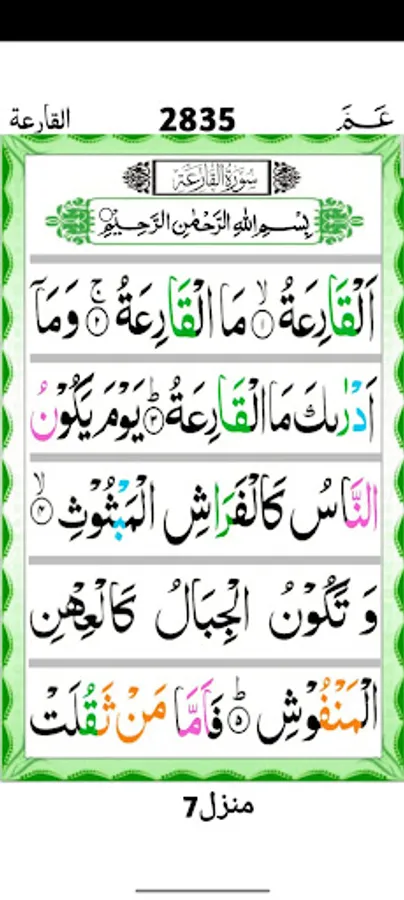 القارعة 2835 عَـمَّ
سُوْرَةُ الْقَارِعَةِ
بِسْمِ اللّٰهِ الرَّحْمٰنِ الرَّحِيْمِ
اَلْقَارِعَةُ ۙ۱ مَا الْقَارِعَةُ ۚ۲ وَمَاۤ
اَدْرٰىكَ مَا الْقَارِعَةُ ؕ۳ يَوْمَ يَكُوْنُ
النَّاسُ كَالْفَرَاشِ الْمَبْثُوْثِ ۙ۴
وَ تَكُوْنُ الْجِبَالُ كَالْعِهْنِ
الْمَنْفُوْشِ ؕ۵ فَاَمَّا مَنْ ثَقُلَتْ
منزل7